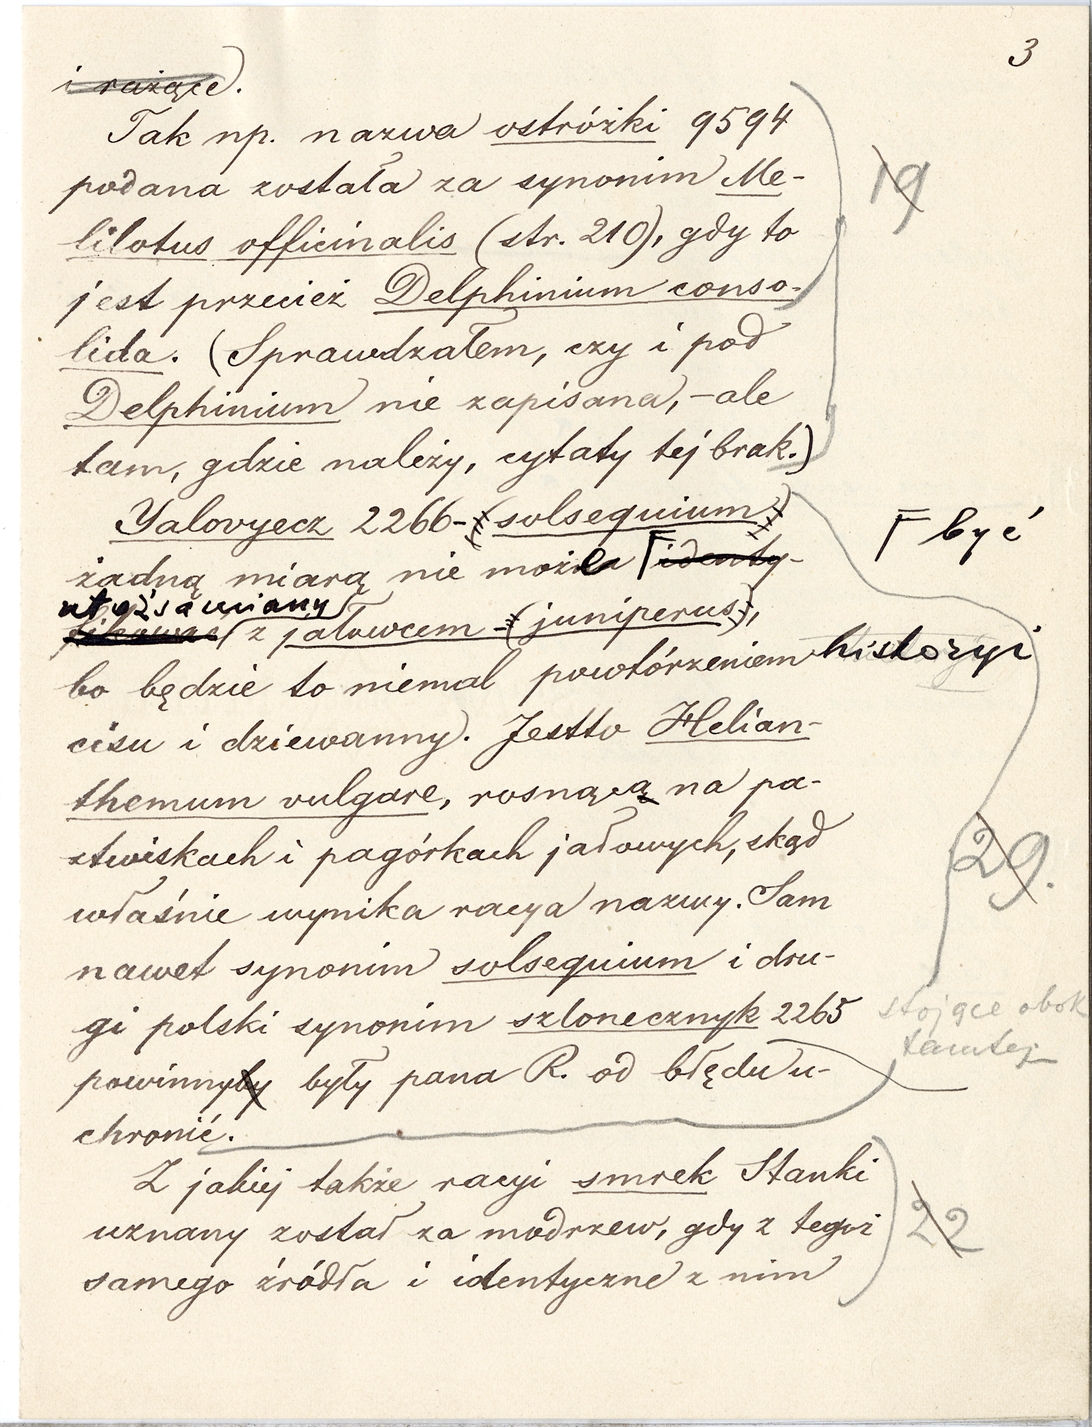 3
i rażące.
Tak np. nazwa ostróżki 9594
podana została za synonim Me-
lilotus officinalis (str. 210), gdy to
jest przecież Delphinium conso-
lida. (Sprawdzałem, czy i pod
Delphinium nie zapisana, - ale
tam, gdzie należy, cytaty tej brak.)
19
Yalovyecz 2266 - (solsequium)
być
żadną miarą nie może identy-
utożsamiany
fikować z jałowcem - (juniperus),
bo będzie to niemal powtórzeniem historyi
cisu i dziewanny. Jestto Helian-
themum vulgare, rosnącą na pa-
stwiskach i pagórkach jałowych, skąd
29.
właśnie wynika racya nazwy. Sam
nawet synonim solsequium i dru-
gi polski synonim szlonecznyk 2265
stojące obok
tamtej
powinnyby były pana R. od błędu u-
chronić.
Z jakiej także racyi smrek Stanki
uznany został za modrzew, gdy z tegoż
22
samego źródła i identyczne z nim